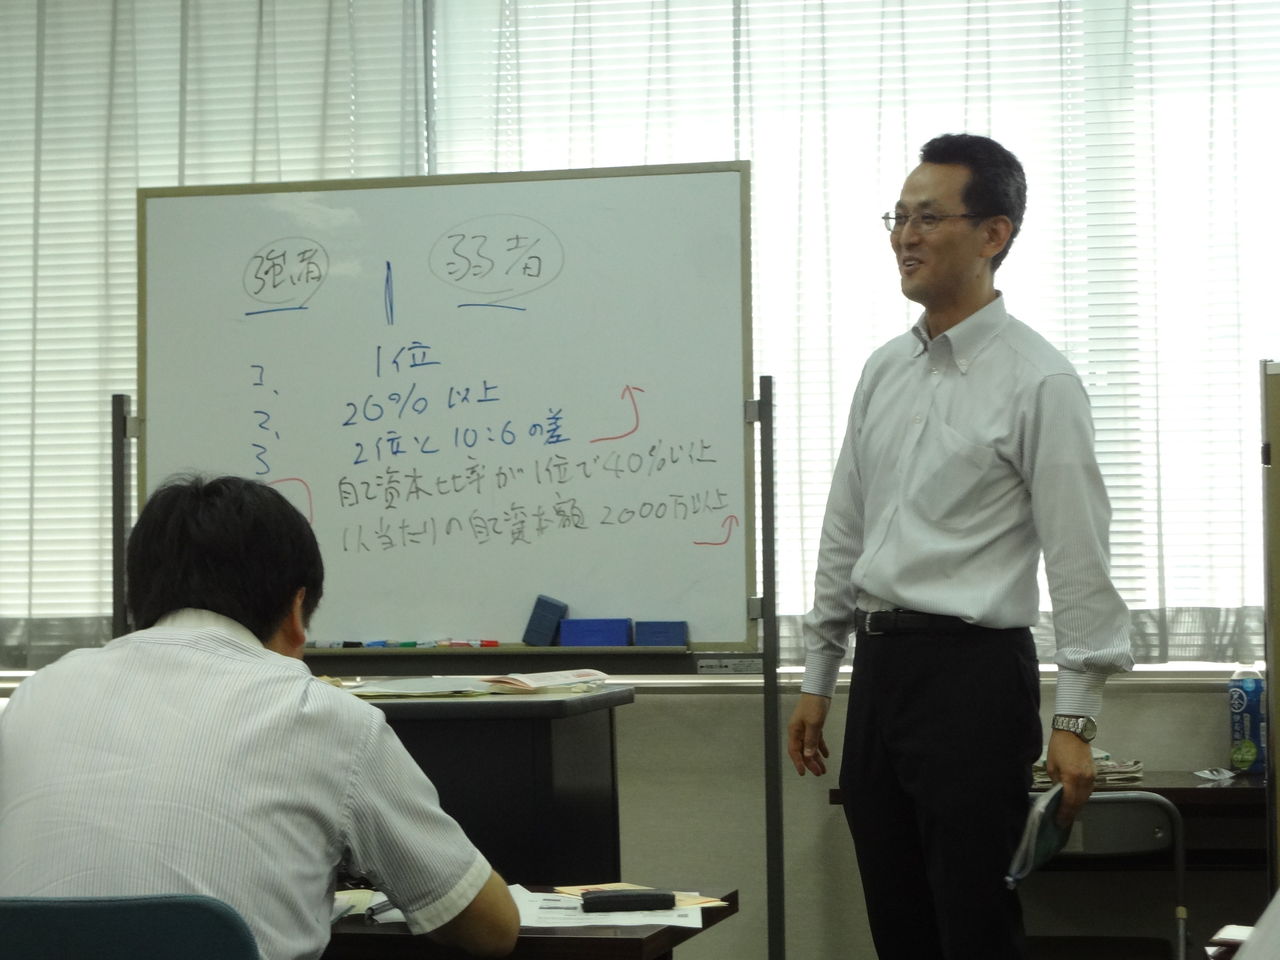 強者 弱者
1、 1位
2、 26%以上
3 2位と10:6の差
自己資本比率が1位で40%以上
1人当たりの自己資本額2000万以上